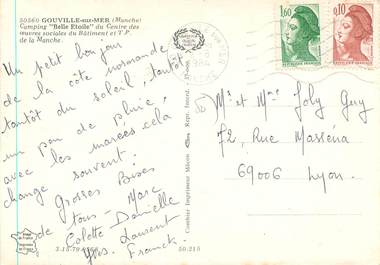 50560 GOUVILLE-sur-MER (Manche)
Camping "Belle Etoile" du Centre des
œuvres sociales du Bâtiment et T.P.
de la Manche.
Un petit bonjour
de la côte normande
tantôt du soleil, tantôt
un peu de pluie,
avec les marées cela
change souvent;
Grosses Bises
de tous - Marc
Colette Danielle
Yves. Laurent
Franck.
1,60
0,10
M^r et M^me Joly Guy
72, Rue Masséna
69006 Lyon.
Combier Imprimeur Mâcon
Repr. Interd.
50.215